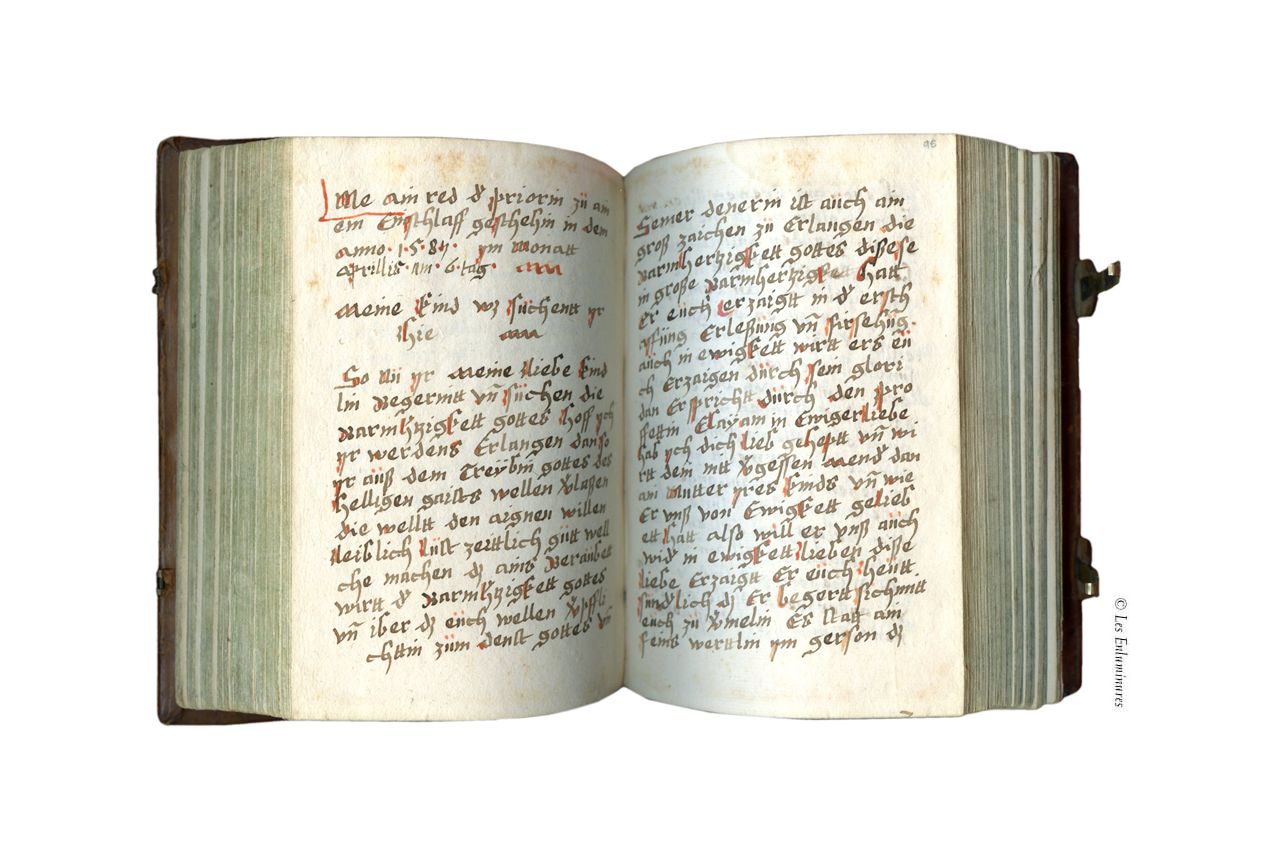 Me ain red dˀ priorin zü am
ein Enschlaff geschehin in dem
anno · 1 · 5 · 87 · ym Monatt
aprillis · am · 6 · tag ·
Meine kind wz süchentt yr
hie
So Nü yr meine liebe kind
lin Begerintt vn̄ süchen die
Barmhˀtzigkett gottes hoff ych
yr werdens Erlangen dan so
yr auß dem Treÿbin gottes des
helligen gaists wellen vˀlaßen
die welltt den aignen willen
leiblich lüst zerttlich gütt well
che machen dz ains Beraubett
wirtt dˀ Barmhˀtzigkett gottes
vn̄ iber dz eüch wellen vˀpfli
chttin züm denst gottes vn̄
96
Seiner denerin ist aüch ain
groß zaichen zü Erlangen die
Barmhertzigkett gottes diße
in große Barmhertzigkett hatt
Er eüch erzaigtt in dˀ ersch
affüng Erleßüng vn̄ firsehüng ·
aüch in ewigkett wirtt ers eü
ch Erzaigen dürch sein glori
dan Er sprichtt dürch den pro
ffettin in Ewiger liebe
hab ych dich lieb gehept vn̄ wi
rtt dein nitt vˀgessen mendˀ dan
ain Mutter yres kinds vn̄ wie
Er vnß von Ewigkett gelieb
ett hatt also will er vnß aüch
widˀ in ewigkett lieben diße
liebe Erzaigtt Er eüch heütt
sündˀlich dz Er begertt sich mitt
eüch zü vˀmelin Es statt ain
feins werttlin ym gerson dz
© Les Enluminures